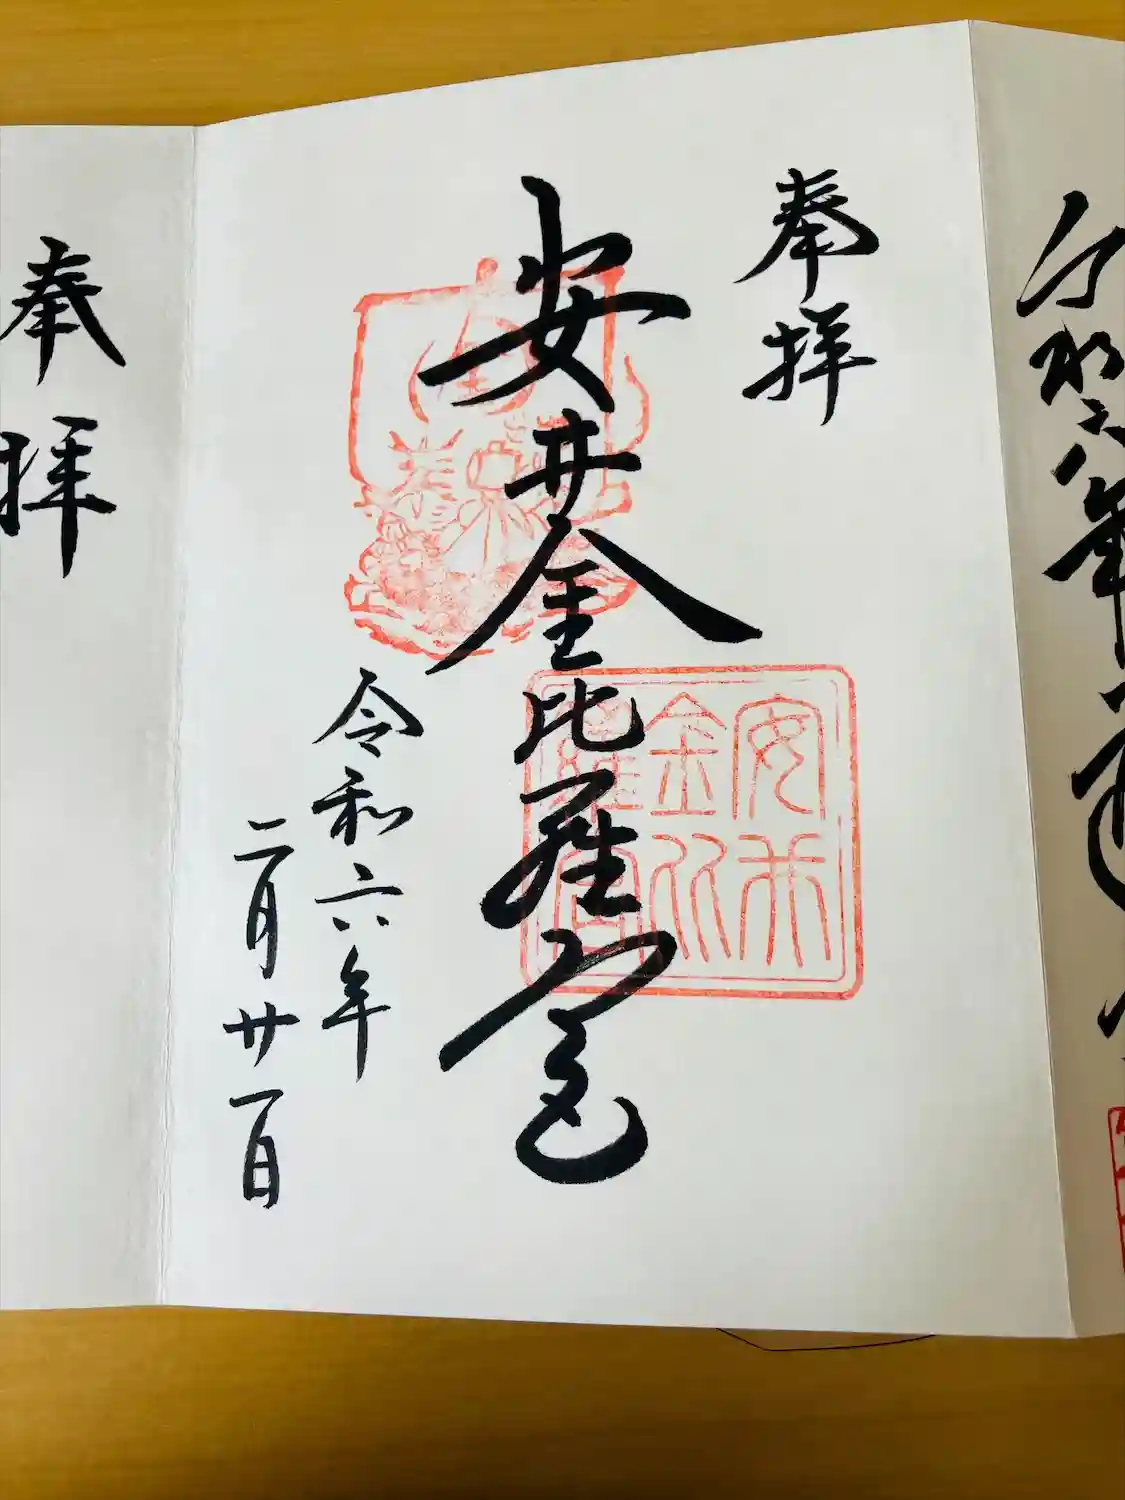 令和六年
奉拝
安井金比羅宮
令和六年
二月廿一日
安井
金比
羅宮
奉拝